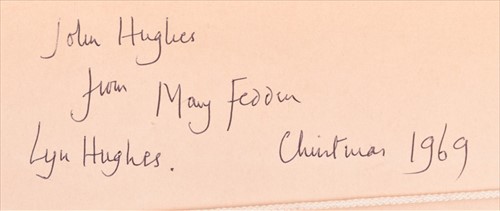 John Hughes
from Mary Fedden
Lyn Hughes. Christmas 1969